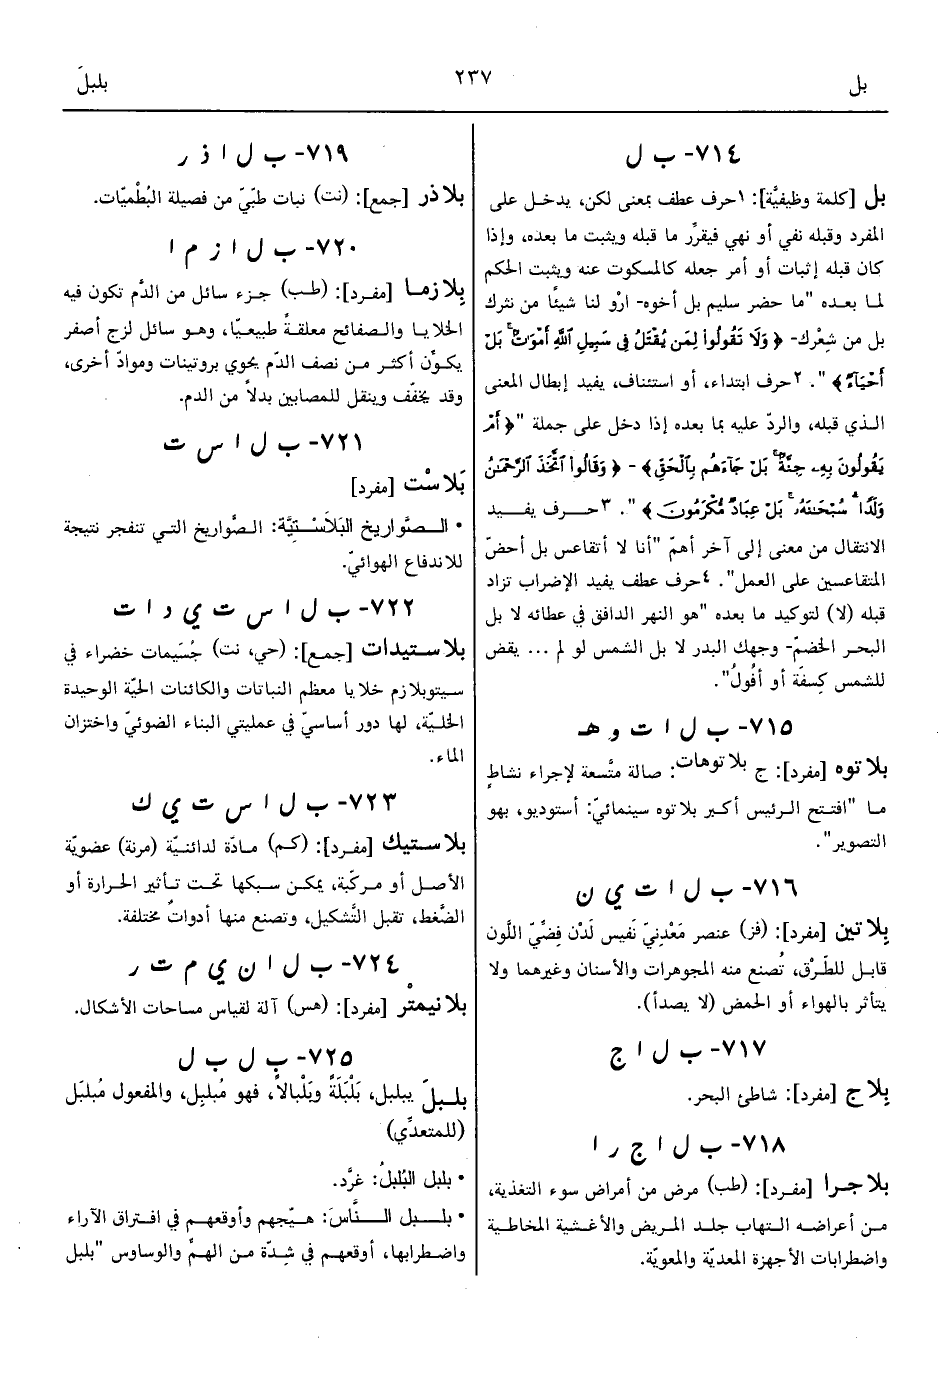 بل
٢٣٧
بلبلَ
٧١٤- ب ل
بل [كلمة وظيفيَّة]: ١حرف عطف بمعنى لكن، يدخل على
المفرد وقبله نفي أو نهي فيقرِّر ما قبله ويثبت ما بعده، وإذا
كان قبله إثبات أو أمر جعله كالمسكوت عنه ويثبت الحكم
لما بعده "ما حضر سليم بل أخوه- ارْوِ لنا شيئًا من نثرك
بل من شِعْرك- ﴿ وَلَا تَقُولُوا لِمَن يُقْتَلُ فِي سَبِيلِ اللَّهِ أَمْوَاتٌ بَلْ
أَحْيَاءٌ ﴾ ". ٢حرف ابتداء، أو استئناف، يفيد إبطال المعنى
الذي قبله، والردّ عليه بما بعده إذا دخل على جملة "﴿ أَمْ
يَقُولُونَ بِهِ جِنَّةٌ بَلْ جَاءَهُم بِالْحَقِّ ﴾ - ﴿ وَقَالُوا اتَّخَذَ الرَّحْمَنُ
وَلَدًا سُبْحَانَهُ بَلْ عِبَادٌ مُكْرَمُونَ ﴾ ". ٣حرف يفيد
الانتقال من معنى إلى آخر أهمّ "أنا لا أتقاعس بل أحضّ
المتقاعسين على العمل". ٤حرف عطف يفيد الإضراب تزاد
قبله (لا) لتوكيد ما بعده "هو النهر الدافق في عطائه لا بل
البحر الخضمّ- وجهك البدر لا بل الشمس لو لم ... يقض
للشمس كِسفَة أو أفُولُ".
٧١٥- ب ل ا ت و هـ
بلاتوه [مفرد]: ج بلاتوهات: صالة متَّسعة لإجراء نشاطٍ
ما "افتتح الرئيس أكبر بلاتوه سينمائيّ: أستوديو، بهو
التصوير".
٧١٦- ب ل ا ت ي ن
بِلاتين [مفرد]: (فز) عنصر مَعْدنِيّ نَفيس لَدْن فِضِّيّ اللَّون
قابل للطَّرْق، تُصنع منه المجوهرات والأسنان وغيرهما ولا
يتأثر بالهواء أو الحمض (لا يصدأ).
٧١٧- ب ل ا ج
بِلاج [مفرد]: شاطئ البحر.
٧١٨- ب ل ا ج ر ا
بلاجرا [مفرد]: (طب) مرض من أمراض سوء التغذية،
من أعراضه التهاب جلد المريض والأغشية المخاطية
واضطرابات الأجهزة المعديّة والمعويّة.
٧١٩- ب ل ا ذ ر
بلاذر [جمع]: (نت) نبات طبّيّ من فصيلة البُطْميّات.
٧٢٠- ب ل ا ز م ا
بِلازما [مفرد]: (طب) جزء سائل من الدَّم تكون فيه
الخلايا والصفائح معلقةً طبيعيًّا، وهو سائل لزج أصفر
يكوِّن أكثر من نصف الدَّم يحوي بروتينات وموادّ أخرى،
وقد يخفّف وينقل للمصابين بدلاً من الدم.
٧٢١- ب ل ا س ت
بَلاسْت [مفرد]
• الصَّواريخ البَلاَسْتِيَّة: الصَّواريخ التي تنفجر نتيجة
للاندفاع الهوائيّ.
٧٢٢- ب ل ا س ت ي د ا ت
بلاستيدات [جمع]: (حي، نت) جُسَيمات خضراء في
سيتوبلازم خلايا معظم النباتات والكائنات الحيّة الوحيدة
الخليّة، لها دور أساسيّ في عمليتي البناء الضوئيّ واختزان
الماء.
٧٢٣- ب ل ا س ت ي ك
بلاستيك [مفرد]: (كم) مادّة لدائنيّة (مرنة) عضويّة
الأصل أو مركّبة، يمكن سبكها تحت تأثير الحرارة أو
الضَّغط، تقبل التَّشكيل، وتصنع منها أدواتٌ مختلفة.
٧٢٤- ب ل ا ن ي م ت ر
بلانيمتْر [مفرد]: (هس) آلة لقياس مساحات الأشكال.
٧٢٥- ب ل ب ل
بلبلَ يبلبل، بَلْبَلَةً وبَلْبالاً، فهو مُبلبِل، والمفعول مُبلبَل
(للمتعدِّي)
• بلبل البُلبلُ: غرَّد.
• بلبل النَّاسَ: هيّجهم وأوقعهم في افتراق الآراء
واضطرابها، أوقعهم في شِدّة من الهمّ والوساوس "بلبل